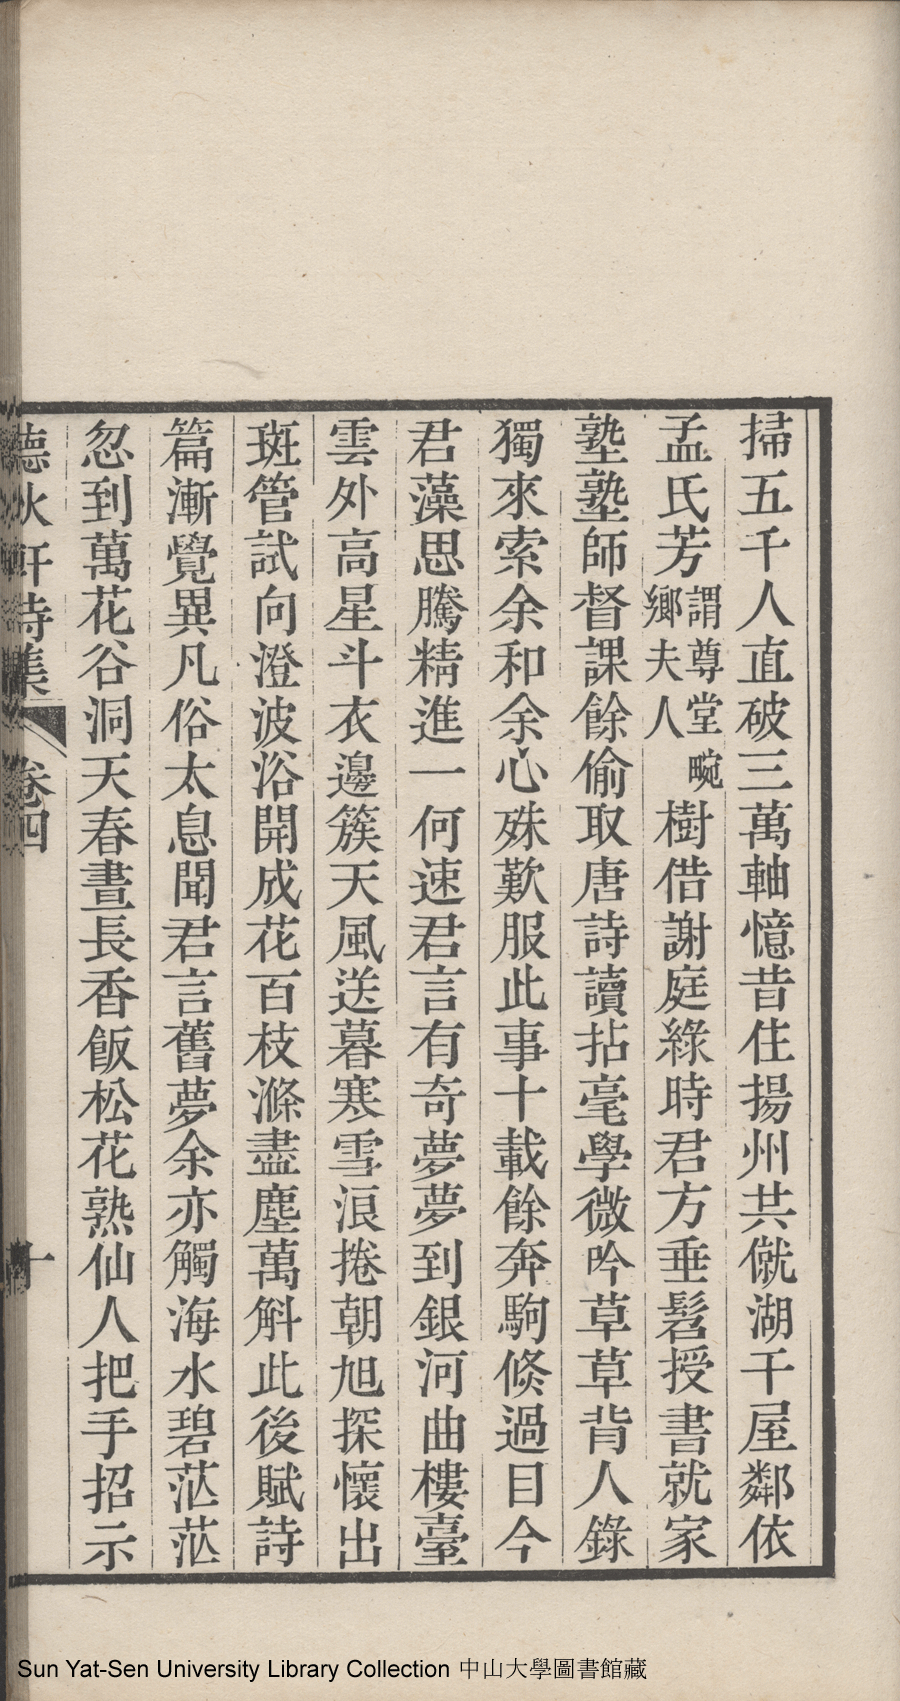 掃五千人直破三萬軸憶昔住揚州共僦湖干屋鄰依
孟氏芳謂尊堂鄉夫人畹樹借謝庭綠時君方垂髫授書就家
塾塾師督課餘偷取唐詩讀拈毫學微吟草草背人錄
獨來索余和余心殊歎服此事十載餘奔駒倏過目今
君藻思騰精進一何速君言有奇夢夢到銀河曲樓臺
雲外高星斗衣邊簇天風送暮寒雪浪捲朝旭探懷出
斑管試向澄波浴開成花百枝滌盡塵萬斛此後賦詩
篇漸覺異凡俗太息聞君言舊夢余亦觸海水碧茫茫
忽到萬花谷洞天春晝長香飯松花熟仙人把手招示
德水軒詩集 卷四 十
Sun Yat-Sen University Library Collection 中山大學圖書館藏